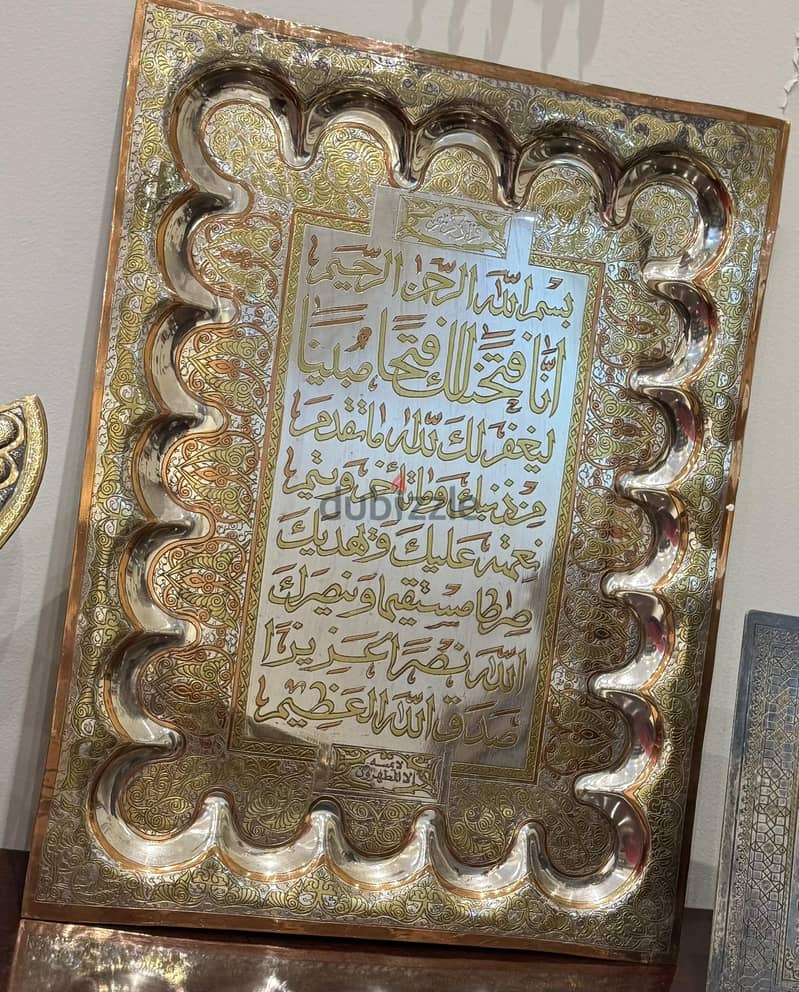 بسم الله الرحمن الرحيم
إنا فتحنا لك فتحا مبينا
ليغفر لك الله ما تقدم
من ذنبك وما تأخر ويتم
نعمته عليك ويهديك
صراطا مستقيما وينصرك
الله نصرا عزيزا
صدق الله العظيم
لا يمسه
إلا المطهرون
dubizzle